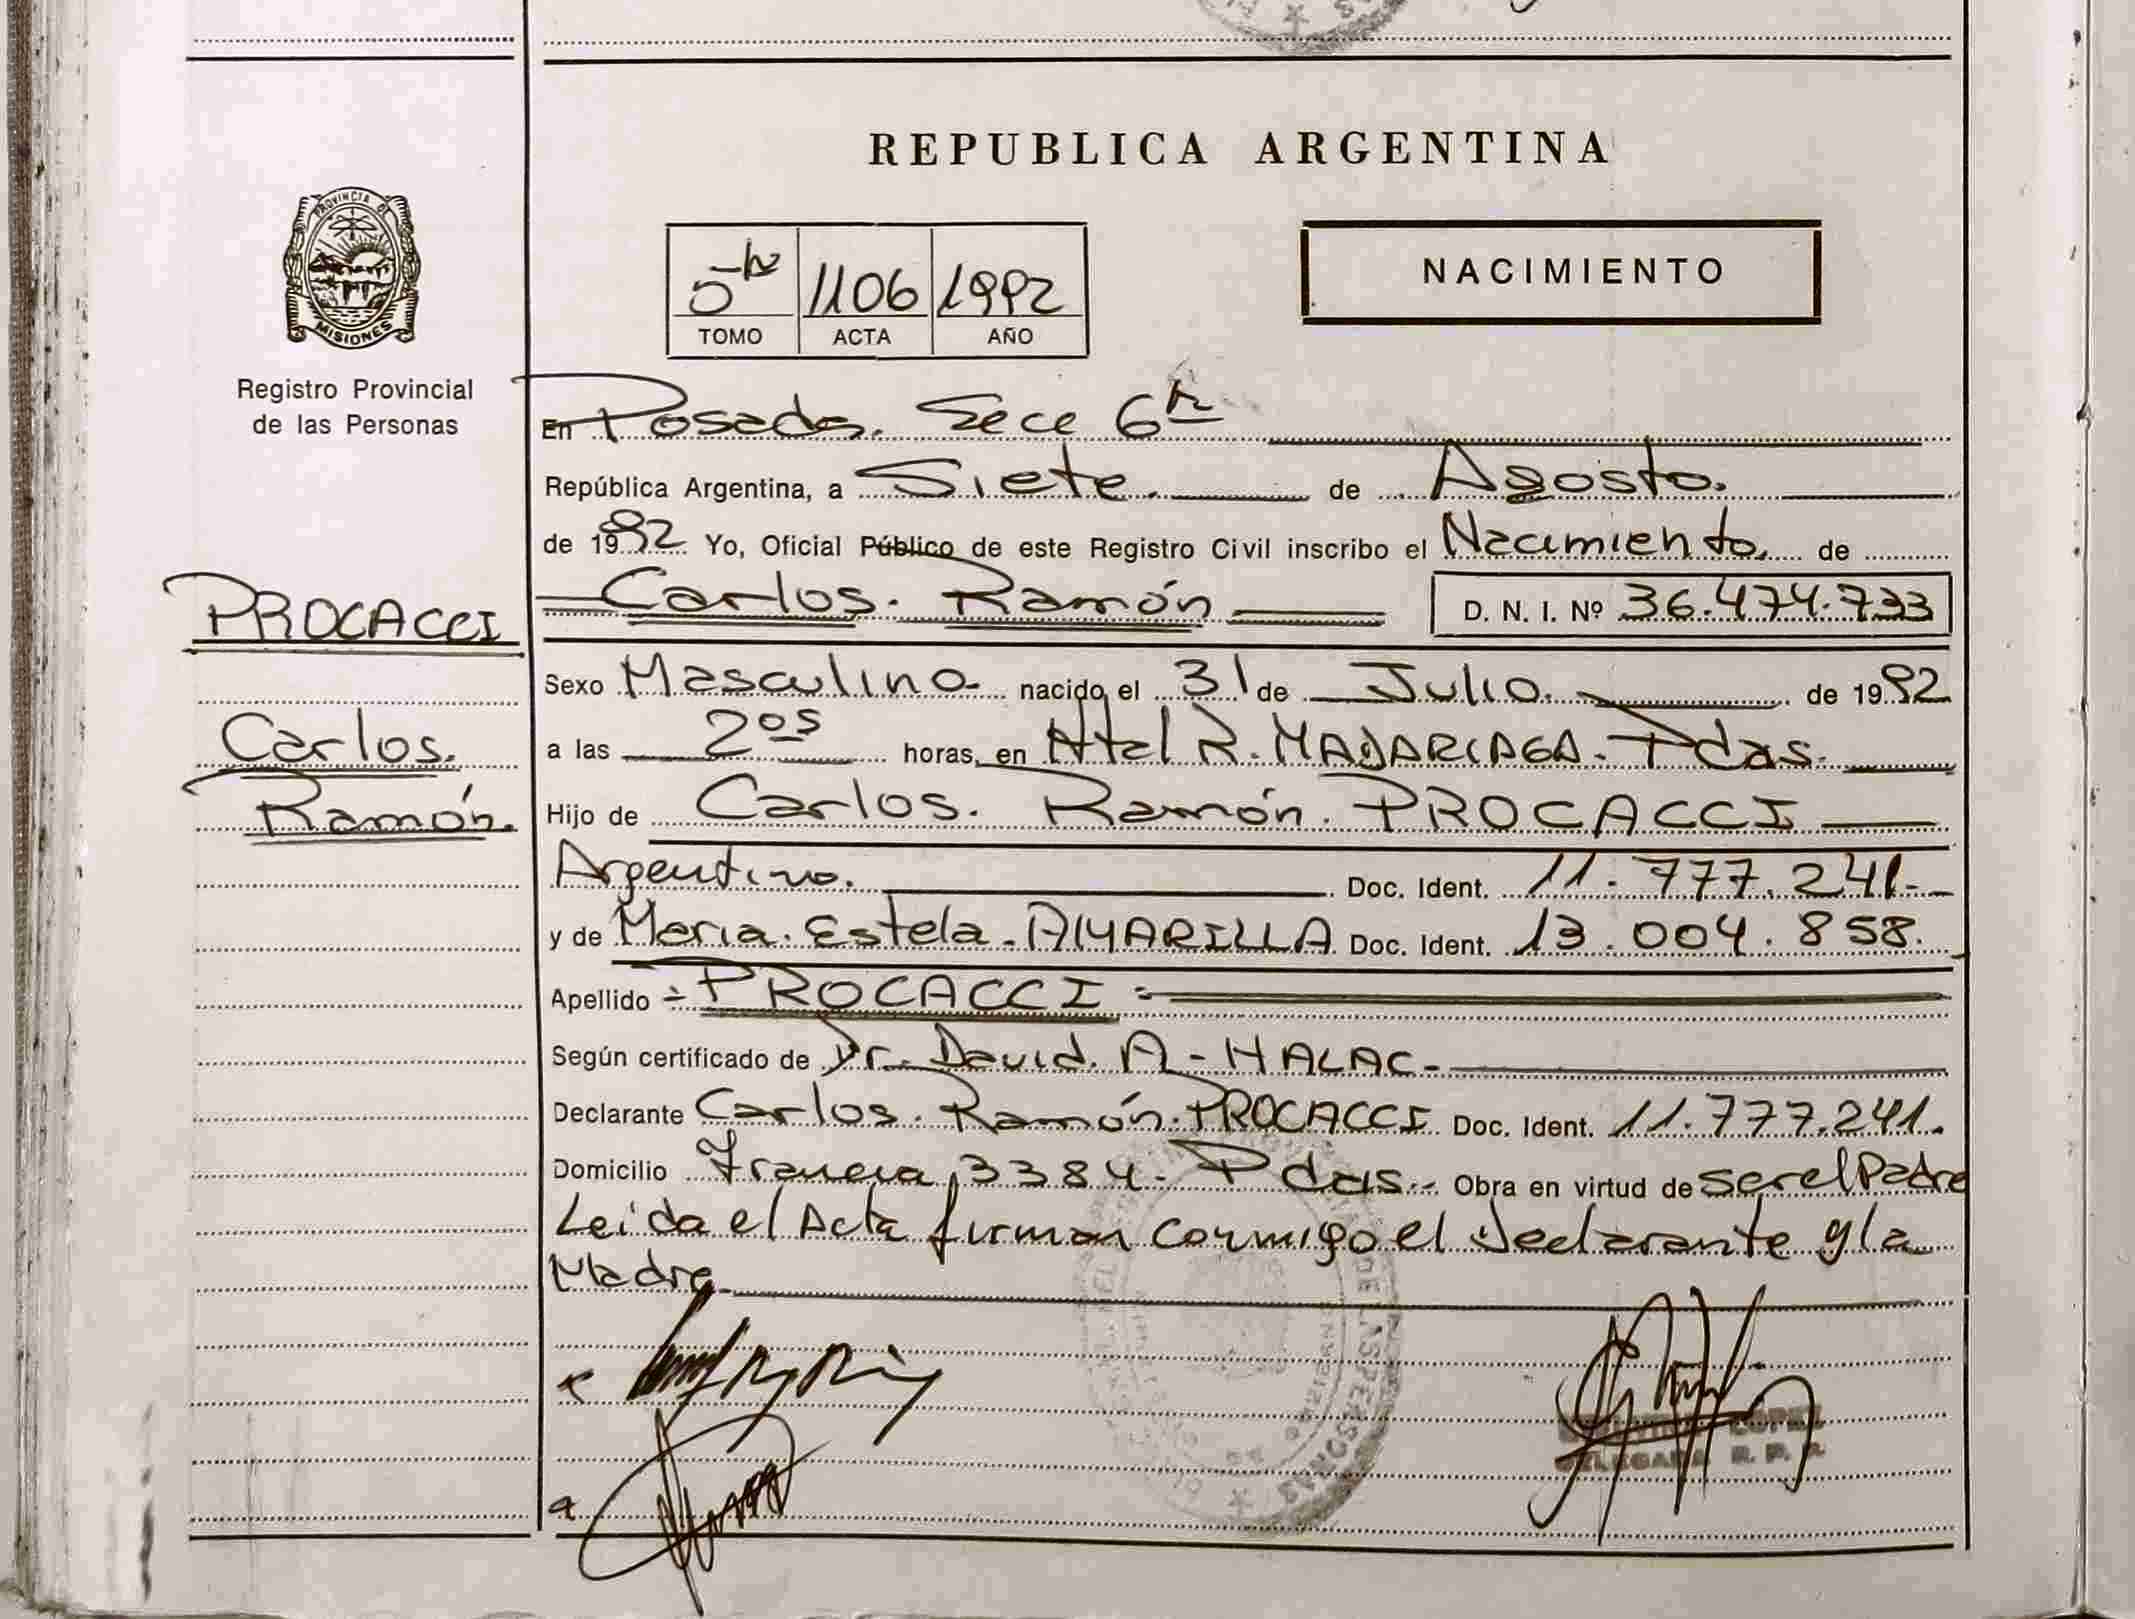 REPUBLICA ARGENTINA
PROVINCIA DE
MISIONES
Registro Provincial
de las Personas
5to 1106 1992
TOMO ACTA AÑO
NACIMIENTO
En Posadas. Secc 6ta
República Argentina, a Siete. de Agosto.
de 1992 Yo, Oficial Público de este Registro Civil inscribo el Nacimiento. de
Carlos. Ramón D. N. I. Nº 36.474.733
PROCACCI
Carlos.
Ramón.
Sexo Masculino. nacido el 31 de Julio. de 1992
a las 2os horas, en Htal R. MADARIAGA. Pdas.
Hijo de Carlos. Ramón. PROCACCI
Argentino. Doc. Ident. 11.777.241-
y de Maria. Estela. AMARILLA Doc. Ident. 13.004.858.
Apellido - PROCACCI -
Según certificado de Dr. David. A - HALAC-
Declarante Carlos. Ramón. PROCACCI Doc. Ident. 11.777.241.
Domicilio Francia 3384. Pdas. Obra en virtud de ser el Padre
Leida el Acta firman conmigo el Declarante y la
Madre
LOPEZ
DELEGADA R. P. P.